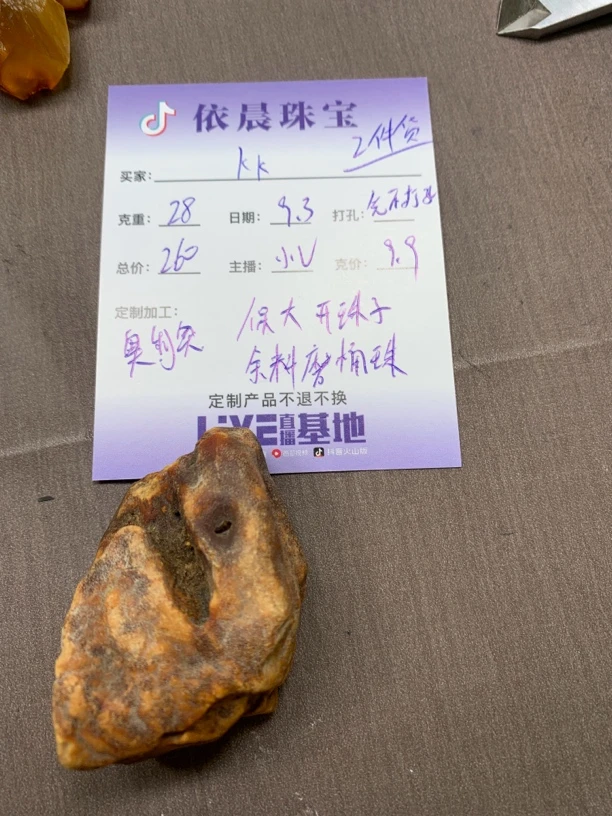 依晨珠宝
2件货
买家: kk
克重: 28 日期: 9.3 打孔: 先不打孔
总价: 260 主播: 小V 克价: 9.9
定制加工:
保大 开珠子
余料磨桶珠
定制产品不退不换
LiVE直播基地
抖音火山版